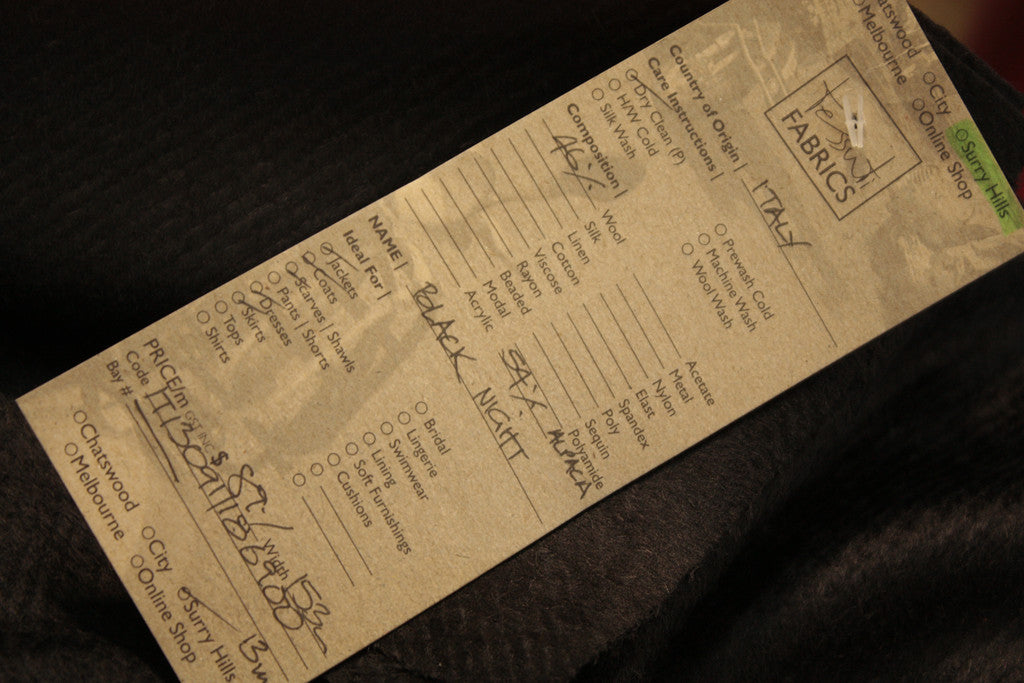 Chatswood
City
Surry Hills
Melbourne
Online Shop
Tessuti
FABRICS
Country of Origin | ITALY
Care Instructions |
Dry Clean (P)
Prewash Cold
H/W Cold
Machine Wash
Silk Wash
Wool Wash
Composition |
46% Wool
Acetate
Silk
Metal
Linen
Nylon
Cotton
Elast
Viscose
Spandex
Rayon
Poly
Beaded
Sequin
Modal
Polyamide
Acrylic
54% ALPACA
NAME | BLACK NIGHT
Ideal For |
Jackets
Bridal
Coats
Lingerie
Scarves | Shawls
Swimwear
Pants | Shorts
Lining
Dresses
Soft Furnishings
Skirts
Cushions
Tops
Shirts
PRICE/m GST INC $ 89/ Width 153
Code
Bay # 13m
Chatswood
City
Surry Hills
Melbourne
Online Shop